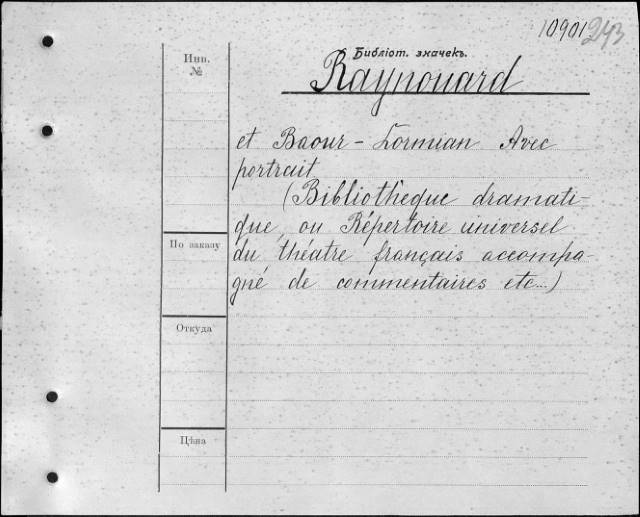 10901 243
Инв. №
Библіот. значекъ.
Raynouard
et Baour-Lormian Avec
portrait
(Bibliothèque dramati-
que, ou Répertoire universel
du théatre français accompa-
gné de commentaires etc...)
По заказу
Откуда
Цѣна